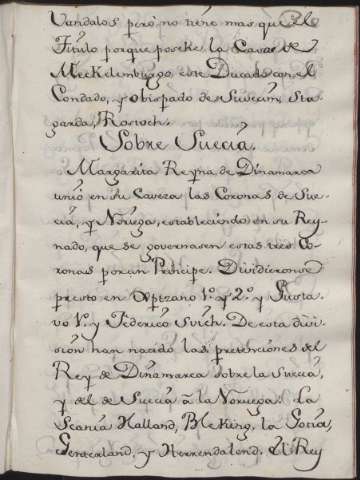 Vandalos pero no tiene mas que el
Titulo porque posehe la Casa de
Meckelemburgo este Ducado con el
Condado, y obispado de Suverin, Sta-
garda, Rostoch.
Sobre Suecia.
Margarita Reyna de Dinamarca
unió en su Caveza las Coronas de Sue-
cia, y Noruega, estableciendo en su Rey-
nado, que se governasen estas tres Co-
ronas por un Principe. Dividieronse
presto en 1º y 2º y Gusta-
vo Vº. y Federico De esta divi-
sion han nacido las pretenciones del
Rey de Dinamarca sobre la Suecia,
y del de Suecia â la Noruega. La
Scania Halland, Bleking, la
y Herrendalond. el Rey